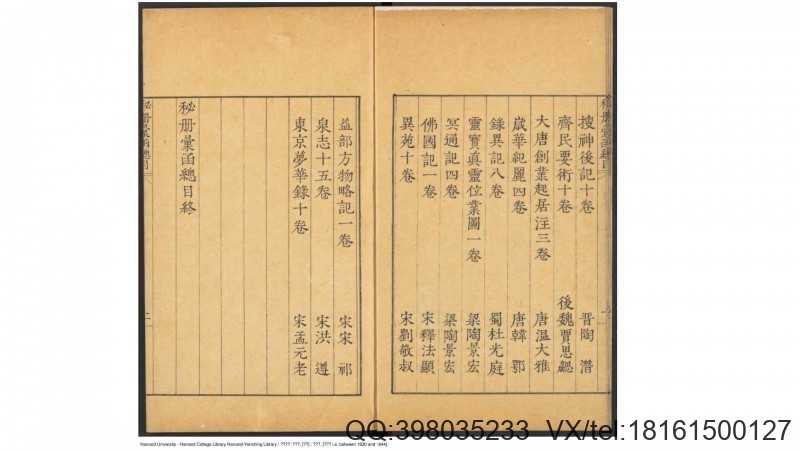 秘册彙函總目
搜神後記十卷 晋陶潛
齊民要術十卷 後魏賈思勰
大唐創業起居注三卷 唐溫大雅
歲華紀麗四卷 唐韓鄂
錄異記八卷 蜀杜光庭
靈寶眞靈位業圖一卷 梁陶景宏
冥通記四卷 梁陶景宏
佛國記一卷 宋釋法顯
異苑十卷 宋劉敬叔
益部方物略記一卷 宋宋祁
泉志十五卷 宋洪遵
東京夢華錄十卷 宋孟元老
秘册彙函總目終
秘册彙函總目
二
QQ:398035233 VX/tel:18161500127
Harvard University - Harvard College Library Harvard-Yenching Library